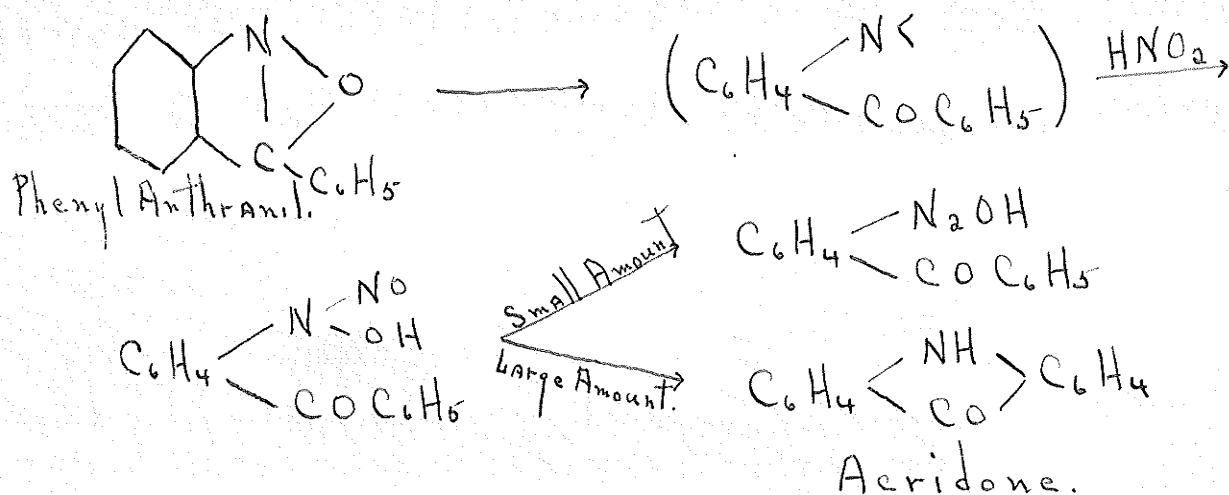 N
O
C
C₆H₅
Phenyl Anthranil.
(C₆H₄ N< COC₆H₅) HNO₂
C₆H₄ N NO OH COC₆H₅
Small Amount
C₆H₄ N₂OH COC₆H₅
Large Amount.
C₆H₄ NH CO C₆H₄
Acridone.